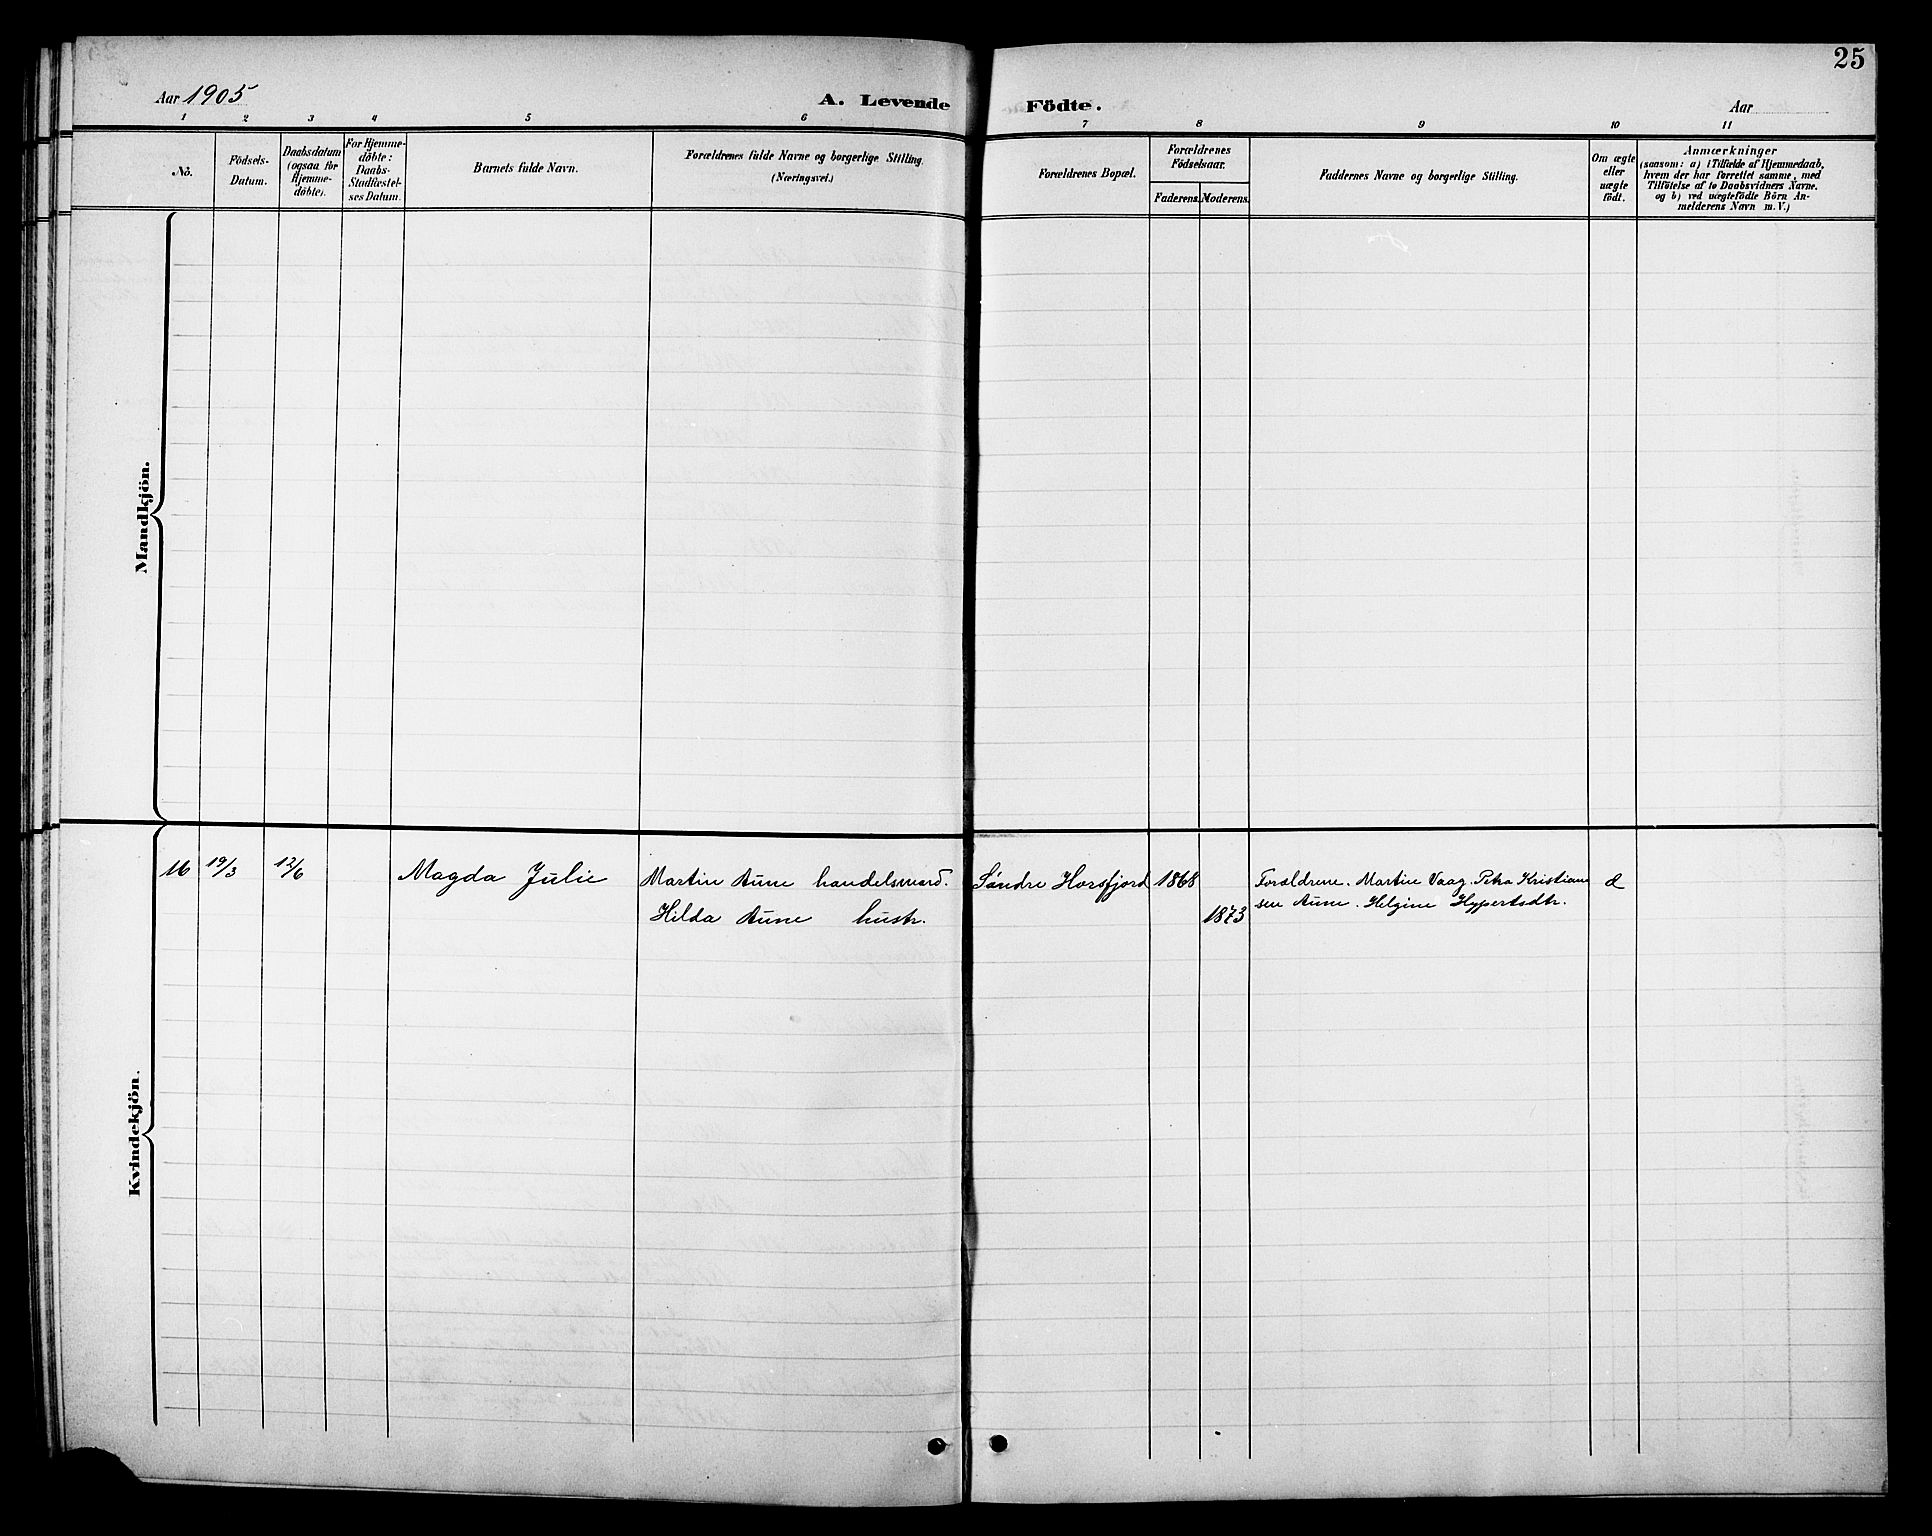 25
Aar 1905
A. Levende Födte.
Aar
1 2 3 4 5 6 7 8 9 10 11
No.
Födsels-
Datum.
Daabsdatum
(ogsaa for
Hjemme-
döbte).
For Hjemme-
döbte:
Daabs-
Stadfæstel-
ses Datum.
Barnets fulde Navn.
Forældrenes fulde Navne og borgerlige Stilling.
(Næringsvei.)
Forældrenes Bopæl.
Forældrenes
Födselsaar.
Faderens. Moderens.
Faddernes Navne og borgerlige Stilling.
Om ægte
eller
uægte
födt.
Anmærkninger
(saasom: a) i Tilfælde af Hjemmedaab,
hvem der har forrettet samme, med
Tilföielse af to Daabsvidners Navne.
og b) ved uægtefödte Börn An-
melderens Navn m. V.)
Mandkjön.
Kvindekjön.
16 19/3 12/6 Magda Julie Martin Aune handelsmand. Söndre Horsfjord 1868 Forældrene. Martin Vaag. Petra Kristian
Hilda Aune hustr. 1873 sen Aune. Helgine Hypertsdtr.